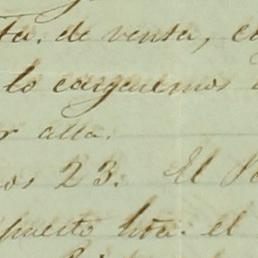 ta. de venta, e
lo cargaremos
r alla.
os 23. El P
puesto hta. el